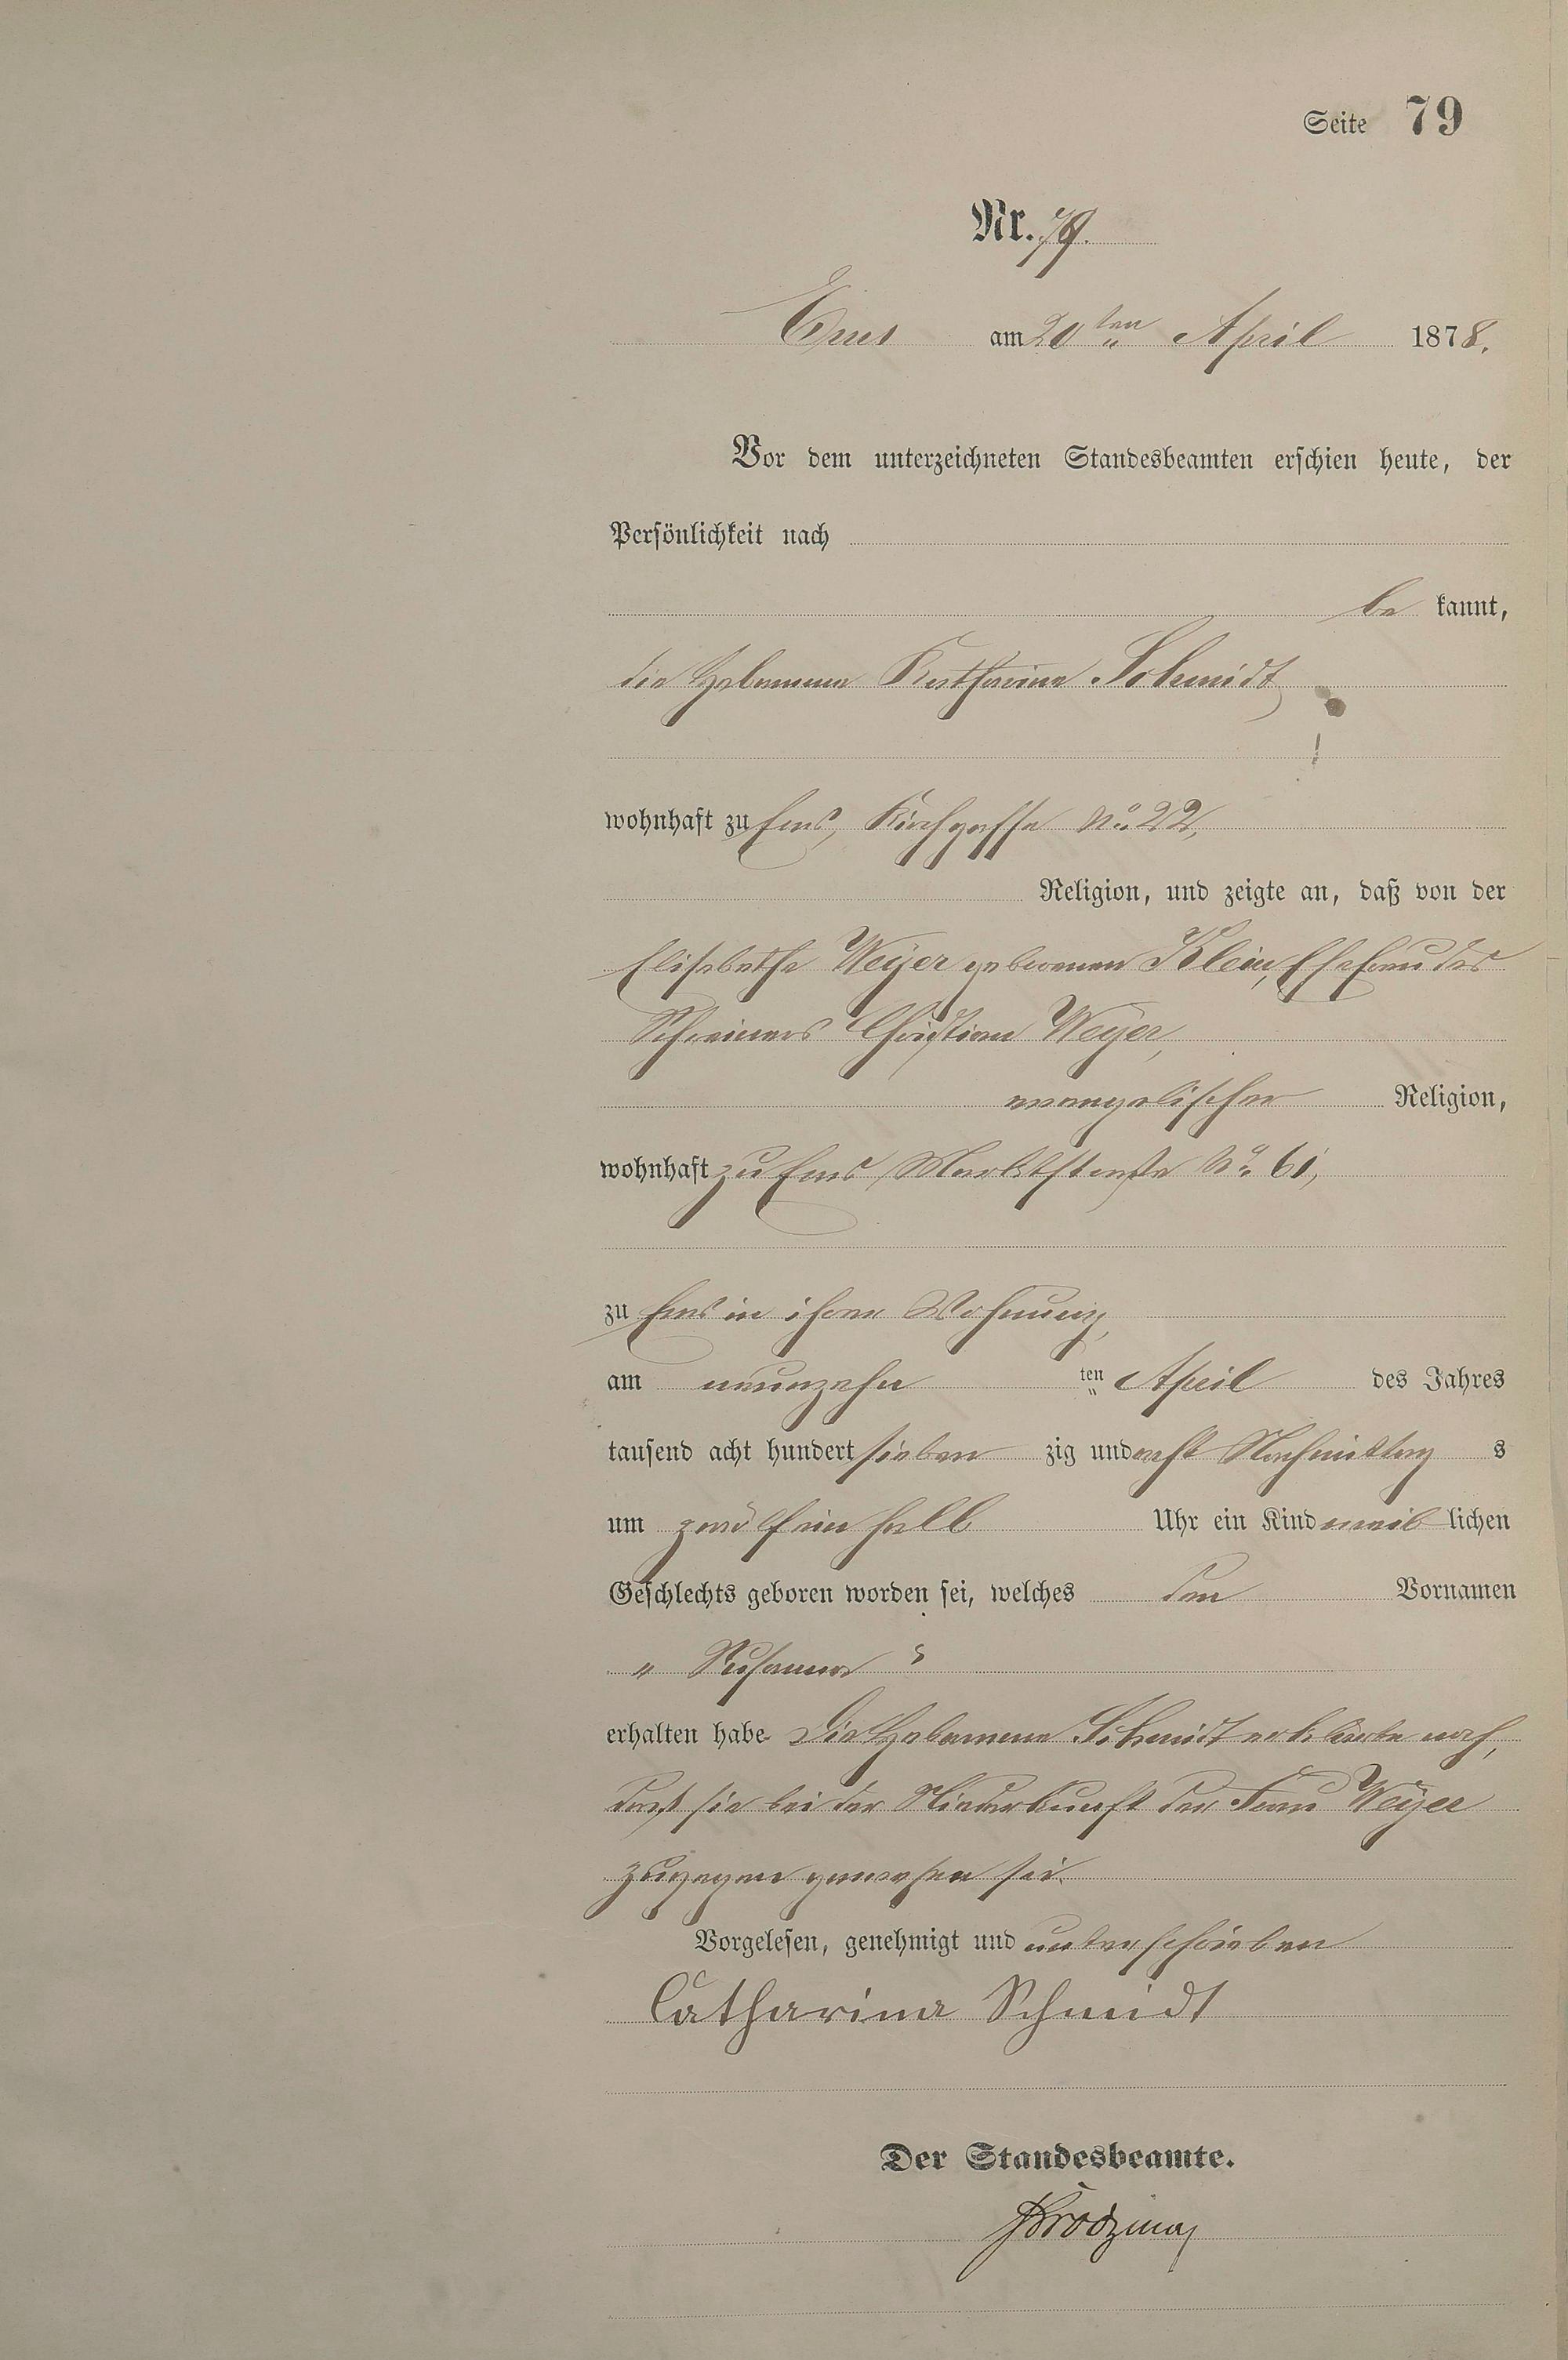 Seite 79
Nr. 79.
Ems am 20ten April 1878.
Vor dem unterzeichneten Standesbeamten erschien heute, der
Persönlichkeit nach
be kannt,
die Hebamme Katharina Schmidt,
wohnhaft zu Ems, Kirchgasse No 22,
Religion, und zeigte an, daß von der
Elisabetha Weyer geborenen Klein, Ehefrau des
Schreiners Christian Weyer,
evangelischer Religion,
wohnhaft zu Ems, Marktstraße No 61,
zu Ems in ihrer Wohnung,
am neunzehn ten April des Jahres
tausend acht hundert sieben zig und acht Nachmittag s
um zwölfeinhalb Uhr ein Kind weib lichen
Geschlechts geboren worden sei, welches den Vornamen
„ Susanna "
erhalten habe Die Hebamme Schmidt erklärte noch,
daß sie bei der Niederkunft der Frau Weyer
zugegen gewesen sei.
Vorgelesen, genehmigt und unterschrieben
Catharina Schmidt
Der Standesbeamte.